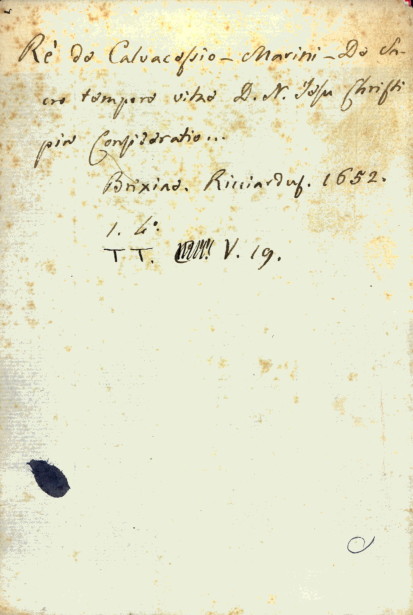 Rè de Calvacossio - Marini - De Sa-
cro tempore vitae D. N. Jesu Christi
pia Consideratio...
Brixiae. Ricciardus. 1652.
1. 4°.
TT. V. 19.